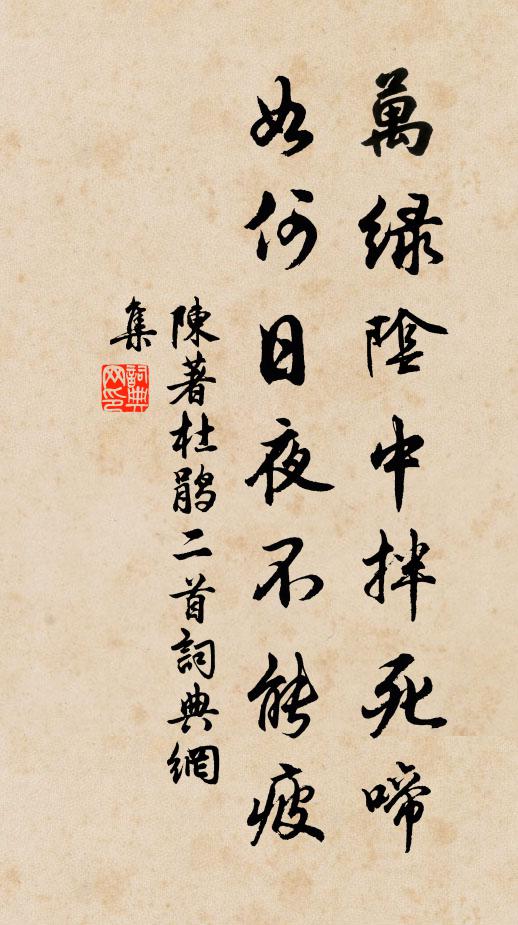 萬緑陰中拌死啼
如何日夜不能疲
陳著杜鵑二首詞典網
集
詞典網印